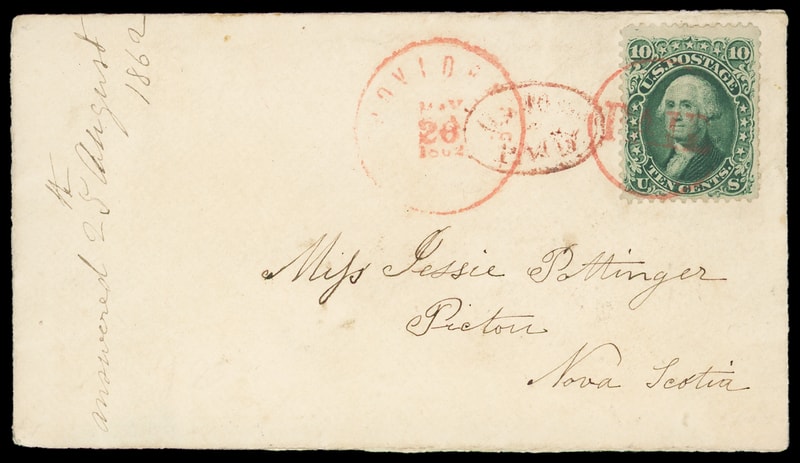 answered 25th August
1862
PROVIDE
MAY
20
1862
PAID
10 10
U.S. POSTAGE
TEN CENTS.
U S
Miſs Jessie Pottinger
Pictou
Nova Scotia